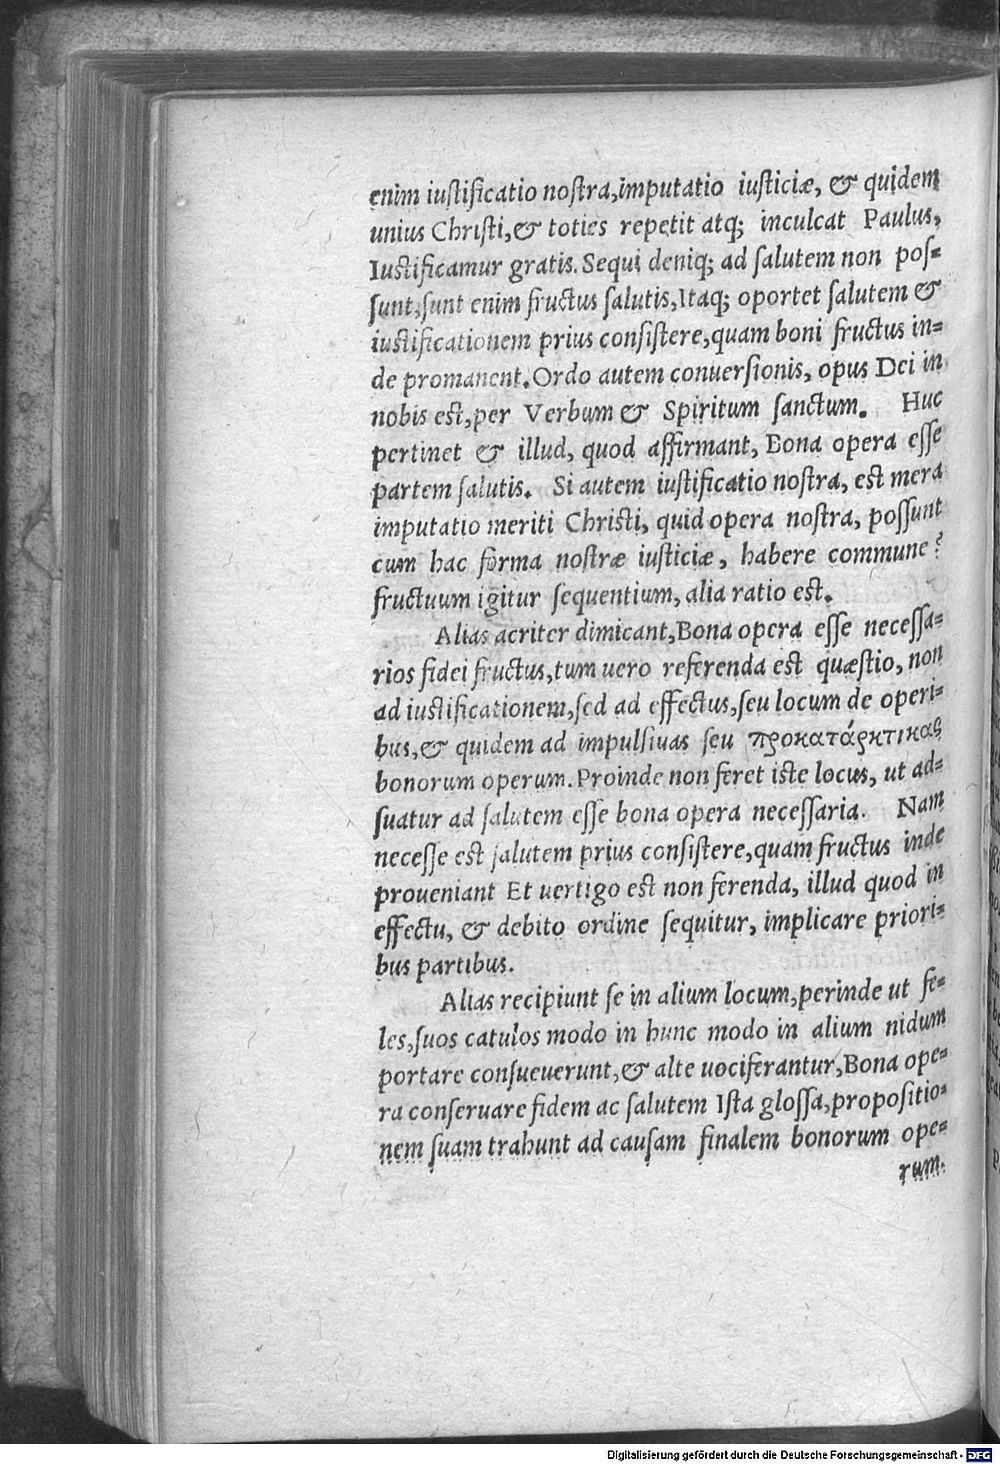 enim iuſtificatio noſtra,imputatio iuſticiæ, & quidem
unius Chriſti,& toties repetit atq; inculcat Paulus,
Iuſtificamur gratis. Sequi deniq; ad ſalutem non poſ-
ſunt,ſunt enim fructus ſalutis,Itaq; oportet ſalutem &
iuſtificationem prius conſiſtere,quam boni fructus in-
de promanent. Ordo autem conuerſionis, opus Dei in
nobis eſt,per Verbum & Spiritum ſanctum. Huc
pertinet & illud, quod affirmant, Bona opera eſſe
partem ſalutis. Si autem iuſtificatio noſtra, eſt mera
imputatio meriti Chriſti, quid opera noſtra, poſſunt
cum hac forma noſtræ iuſticiæ, habere commune?
fructuum igitur ſequentium, alia ratio eſt.
Alias acriter dimicant,Bona opera eſſe neceſſa-
rios fidei fructus,tum uero referenda eſt quæſtio, non
ad iuſtificationem,ſed ad effectus,ſeu locum de operi-
bus,& quidem ad impulſiuas ſeu προκατάρκτικας
bonorum operum. Proinde non feret iſte locus, ut ad-
ſuatur ad ſalutem eſſe bona opera neceſſaria. Nam
neceſſe eſt ſalutem prius conſiſtere,quam fructus inde
proueniant Et uertigo eſt non ferenda, illud quod in
effectu, & debito ordine ſequitur, implicare priori-
bus partibus.
Alias recipiunt ſe in alium locum,perinde ut fe-
les,ſuos catulos modo in hunc modo in alium nidum
portare conſueuerunt,& alte uociferantur,Bona ope-
ra conſeruare fidem ac ſalutem Iſta gloſſa,propoſitio-
nem ſuam trahunt ad cauſam finalem bonorum ope-
rum.
Digitalisierung gefördert durch die Deutsche Forschungsgemeinschaft - DFG